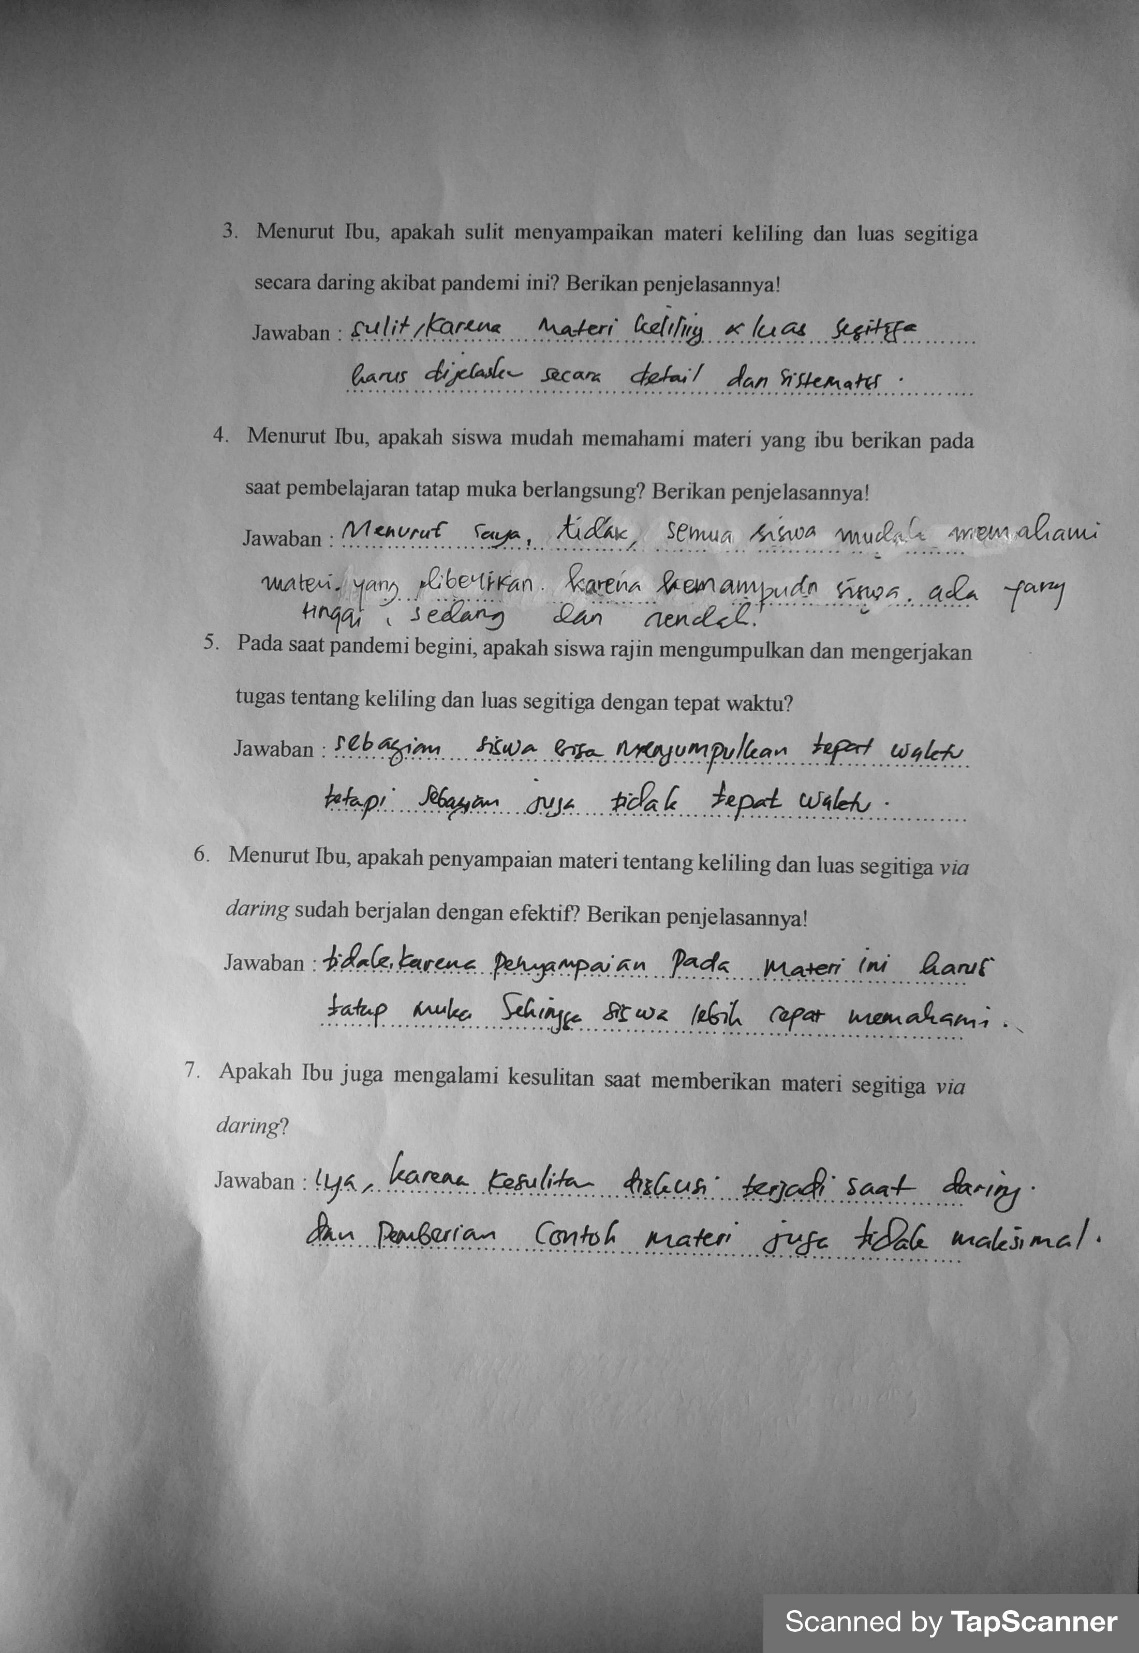 3. Menurut Ibu, apakah sulit menyampaikan materi keliling dan luas segitiga
secara daring akibat pandemi ini? Berikan penjelasannya!
Jawaban : sulit, karena materi keliling & luas segitiga
harus dijelaskn secara detail dan sistematis.
4. Menurut Ibu, apakah siswa mudah memahami materi yang ibu berikan pada
saat pembelajaran tatap muka berlangsung? Berikan penjelasannya!
Jawaban : Menurut saya, tidak, semua siswa mudah memahami
materi yang diberikan. karena kemampuan siswa, ada yang
tinggi, sedang dan rendah.
5. Pada saat pandemi begini, apakah siswa rajin mengumpulkan dan mengerjakan
tugas tentang keliling dan luas segitiga dengan tepat waktu?
Jawaban : sebagian siswa bisa mengumpulkan tepat waktu
tetapi sebagian juga tidak tepat waktu.
6. Menurut Ibu, apakah penyampaian materi tentang keliling dan luas segitiga via
daring sudah berjalan dengan efektif? Berikan penjelasannya!
Jawaban : tidak, karena penyampaian pada materi ini harus
tatap muka sehingga siswa lebih cepat memahami.
7. Apakah Ibu juga mengalami kesulitan saat memberikan materi segitiga via
daring?
Jawaban : Iya, karena kesulitan diskusi terjadi saat daring.
dan pemberian contoh materi juga tidak maksimal.
Scanned by TapScanner